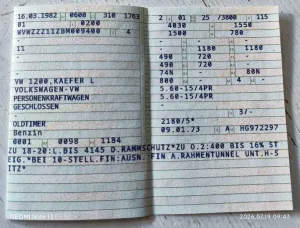 16.03.1982 0600 310 1763
01 0200
WVWZZZ11ZBM009400 4
-
11
-
VW 1200,KAEFER L
VOLKSWAGEN-VW
PERSONENKRAFTWAGEN
GESCHLOSSEN
OLDTIMER
Benzin
0001 0098 1184
2 01 25 /3800 115
4030 1550
1500 780
- -
- 1180 1180
490 720 -
490 720 -
74N - 80N
- 4 8
5.60-15/4PR
5.60-15/4PR
- 3/-
2180/5*
09.01.73 A HG972297
ZU 18-20:L.BIS 4145 D.RAMMSCHUTZ*ZU 0.2:400 BIS 16% ST
EIG.*BEI 10-STELL.FIN:AUSN. FIN A.RAHMENTUNNEL UNT.H-S
ITZ*
REDMI Note 13
2026/07/19 09:43